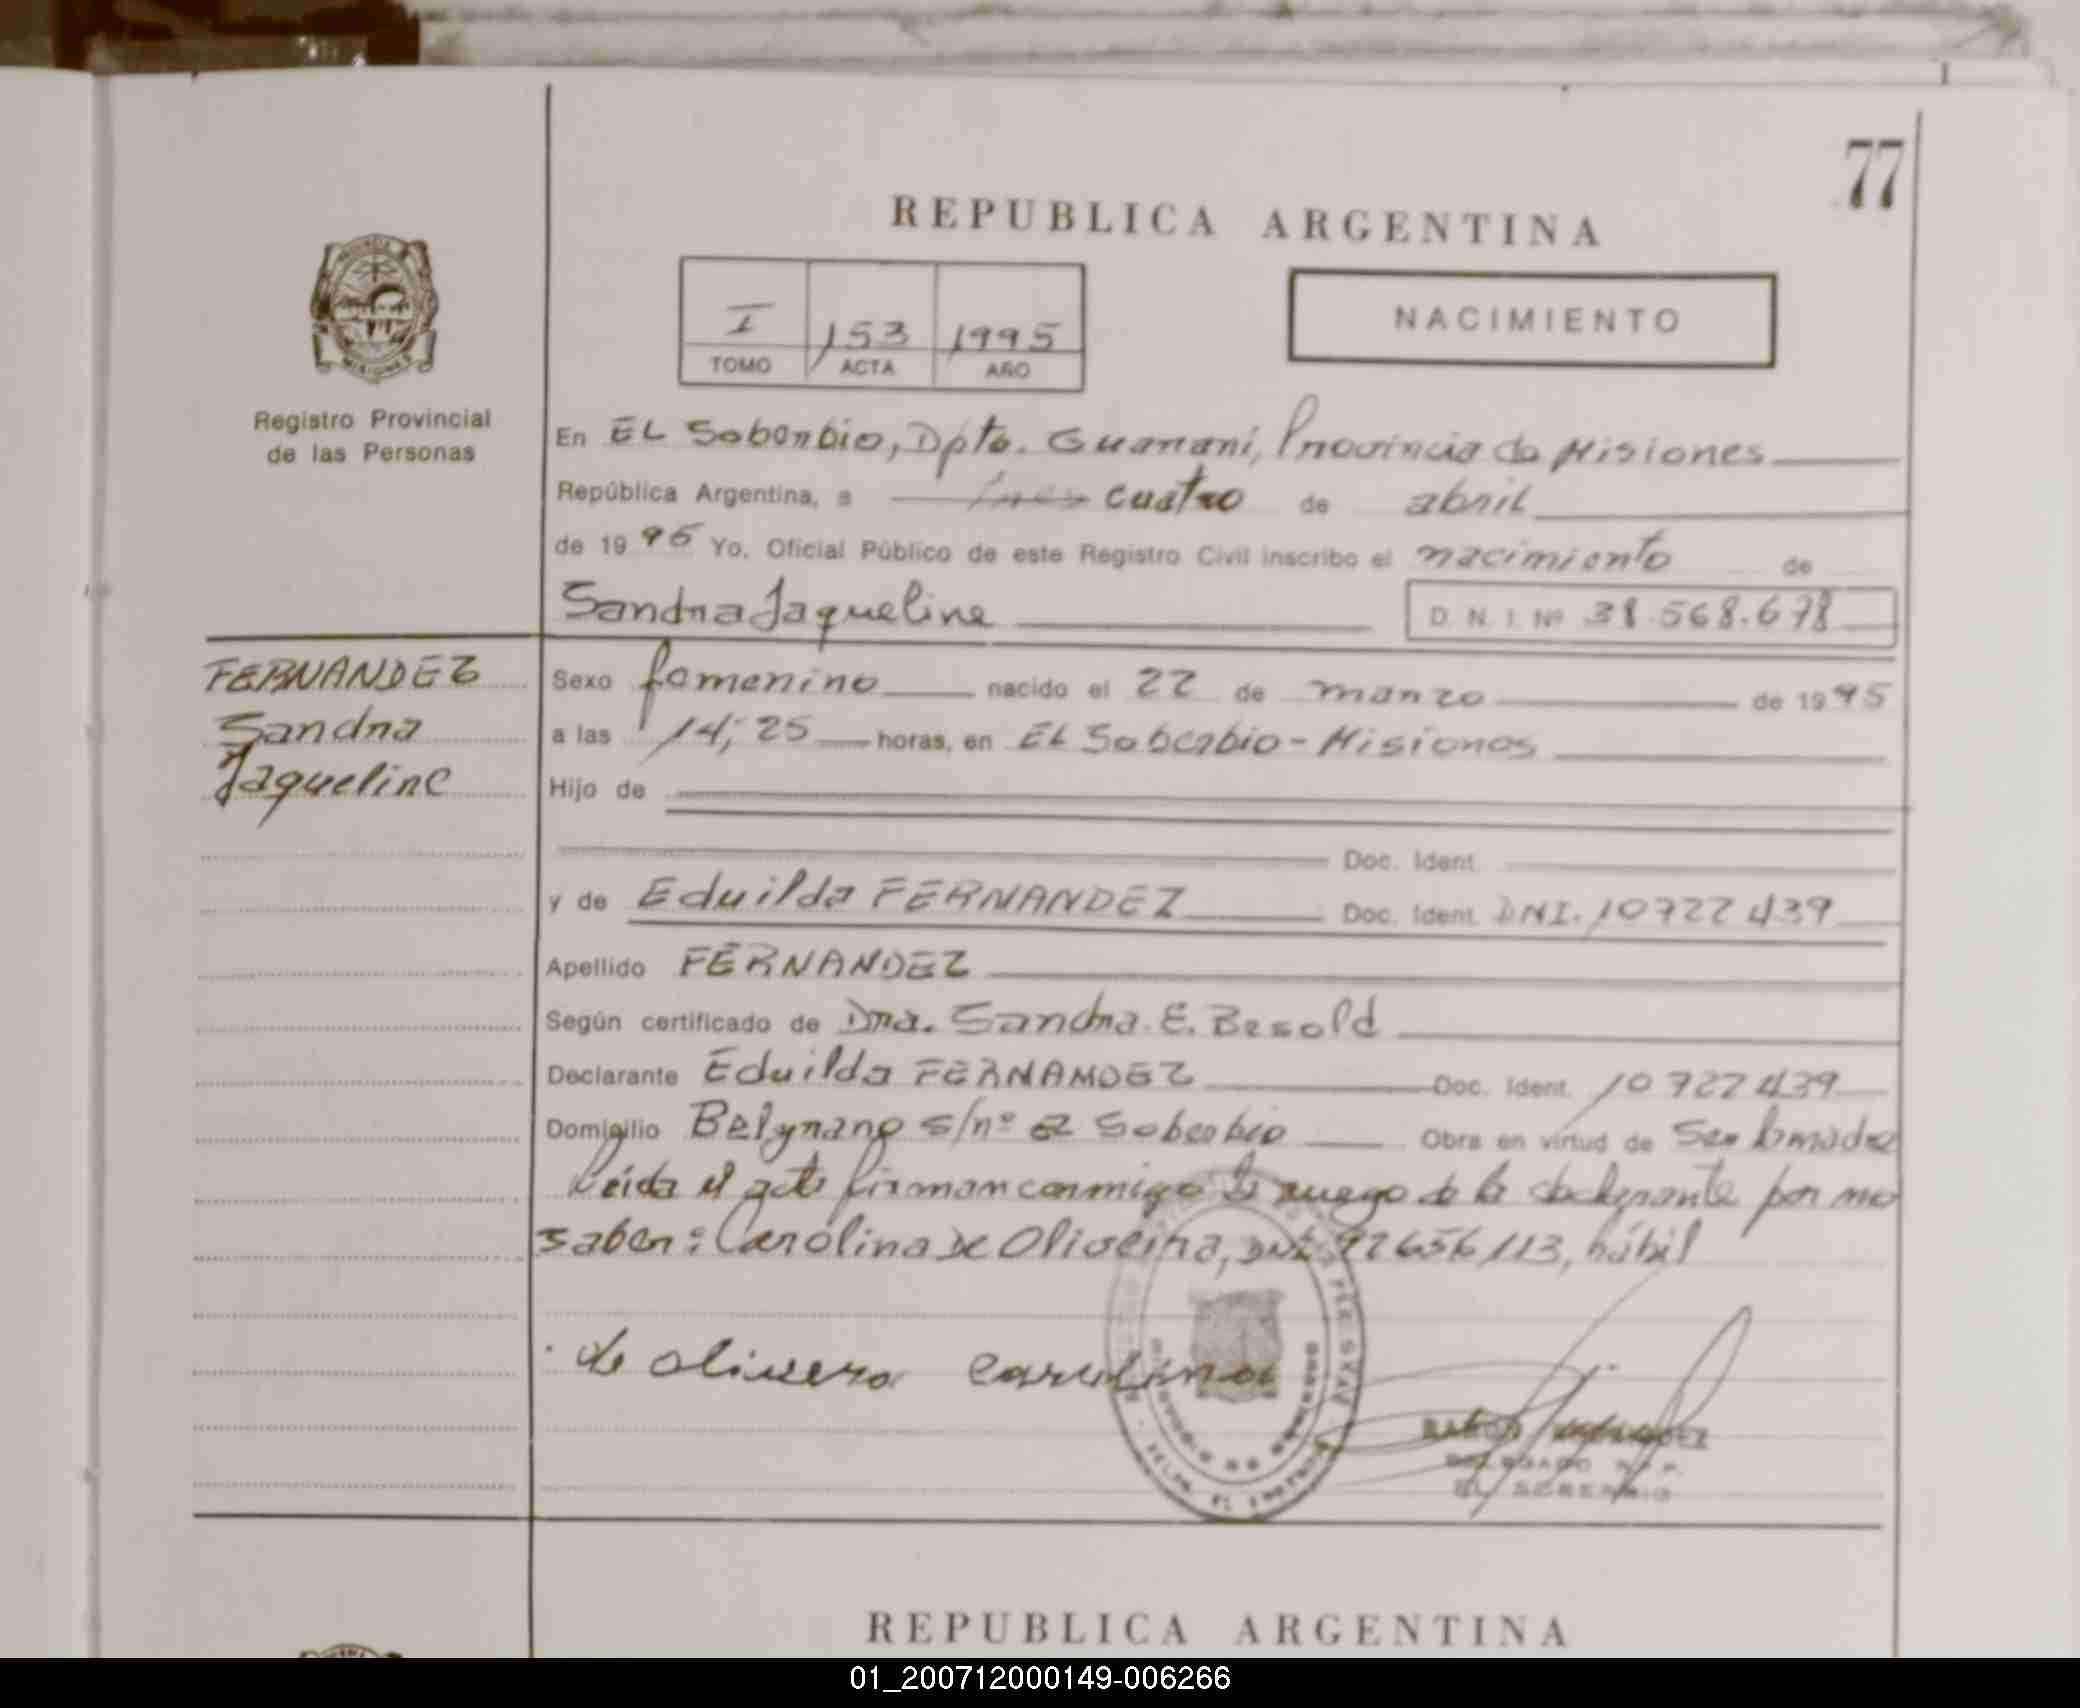 77
REPUBLICA ARGENTINA
I 153 1995
TOMO ACTA AÑO
NACIMIENTO
Registro Provincial
de las Personas
En EL Soberbio, Dpto. Guaraní, Provincia de Misiones
República Argentina, a tres cuatro de abril
de 1995 Yo, Oficial Público de este Registro Civil inscribo el nacimiento de
Sandra Jaqueline D. N. I. Nº 38.568.678
FERNANDEZ
Sandra
Jaqueline
Sexo femenino nacido el 22 de marzo de 1995
a las 14,25 horas, en EL Soberbio - Misiones
Hijo de
Doc. Ident.
y de Eduilda FERNANDEZ Doc. Ident. DNI. 10722439
Apellido FERNANDEZ
Según certificado de Dra. Sandra E. Besold
Declarante Eduilda FERNANDEZ Doc. Ident. 10722439
Domicilio Belgrano s/nº El Soberbio Obra en virtud de Ser la madre
Leída el acta firman conmigo a ruego de la declarante por no
saber: Carolina De Oliveira, DNI 92656113, hábil
de olivera carolina
MISIONES
DELEGADO R.P.P.
EL SOBERBIO
REPUBLICA ARGENTINA
01_200712000149-006266